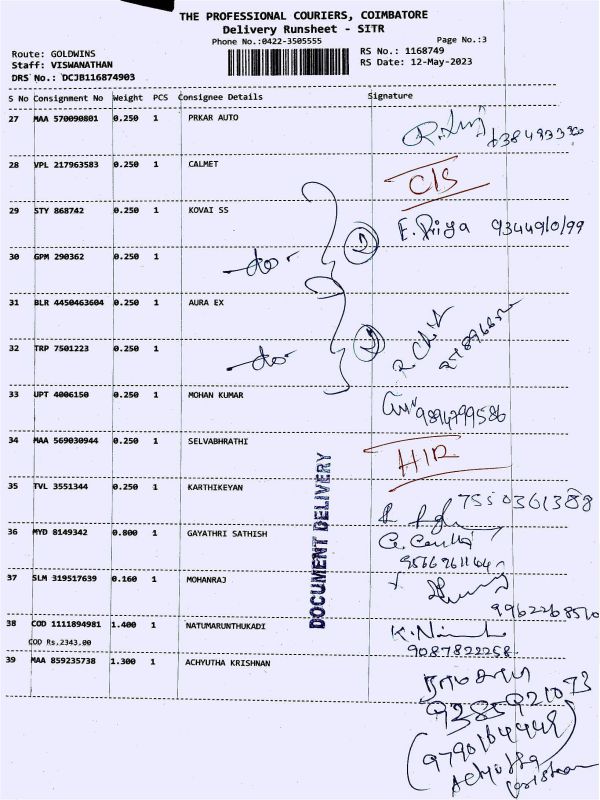 THE PROFESSIONAL COURIERS, COIMBATORE
Delivery Runsheet - SITR
Phone No.:0422-3505555 Page No.:3
Route: GOLDWINS RS No.: 1168749
Staff: VISWANATHAN RS Date: 12-May-2023
DRS No.: DCJB116874903
S No Consignment No Weight PCS Consignee Details Signature
27 MAA 570090801 0.250 1 PRKAR AUTO
28 VPL 217963583 0.250 1 CALMET
29 STY 868742 0.250 1 KOVAI SS E. Priya
30 GPM 290362 0.250 1 -do-
31 BLR 4450463604 0.250 1 AURA EX
32 TRP 7501223 0.250 1 -do-
33 UPT 4006150 0.250 1 MOHAN KUMAR 9894799586
34 MAA 569030944 0.250 1 SELVABHRATHI
35 TVL 3551344 0.250 1 KARTHIKEYAN 7550361388
36 MYD 8149342 0.800 1 GAYATHRI SATHISH
37 SLM 319517639 0.160 1 MOHANRAJ
38 COD 1111894981 1.400 1 NATUMARUNTHUKADI
COD Rs.2343.00 9087822258
39 MAA 859235738 1.300 1 ACHYUTHA KRISHNAN
9385921073
DOCUMENT DELIVERY